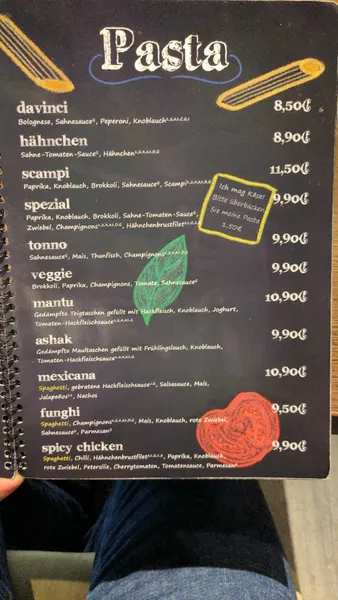 Pasta
davinci 8,50€
Bolognese, Sahnesauce, Peperoni, Knoblauch
hähnchen 8,90€
Sahne-Tomaten-Sauce, Hähnchen
scampi 11,50€
Paprika, Knoblauch, Brokkoli, Sahnesauce, Scampi
spezial 9,90€
Paprika, Knoblauch, Brokkoli, Sahne-Tomaten-Sauce,
Zwiebel, Champignons, Hähnchenbrustfilet
Ich mag Käse!
Bitte überbacken
Sie meine Pasta
1,50€
tonno 9,90€
Sahnesauce, Mais, Thunfisch, Champignons
veggie 9,90€
Brokkoli, Paprika, Champignons, Tomate, Sahnesauce
mantu 10,90€
Gedämpfte Teigtaschen gefüllt mit Hackfleisch, Knoblauch, Joghurt,
Tomaten-Hackfleischsauce
ashak 9,90€
Gedämpfte Maultaschen gefüllt mit Frühlingslauch, Knoblauch,
Tomaten-Hackfleischsauce
mexicana 10,90€
Spaghetti, gebratene Hackfleischsauce, Salsasauce, Mais,
Jalapeños, Nachos
funghi 9,50€
Spaghetti, Champignons, Mais, Knoblauch, rote Zwiebel,
Sahnesauce, Parmesan
spicy chicken 9,90€
Spaghetti, Chilli, Hähnchenbrustfilet, Paprika, Knoblauch,
rote Zwiebel, Petersilie, Cherrytomaten, Tomatensauce, Parmesan